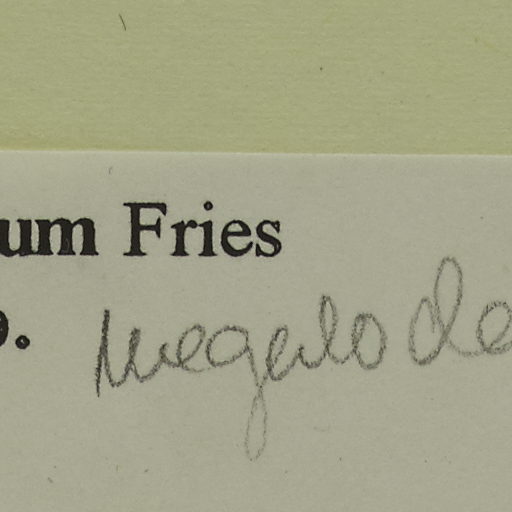 um Fries
9. megalo de